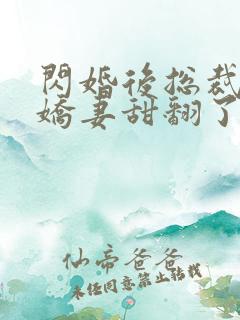 閃婚後总裁
嬌妻甜翻了
仙帝爸爸
未经同意禁止转载